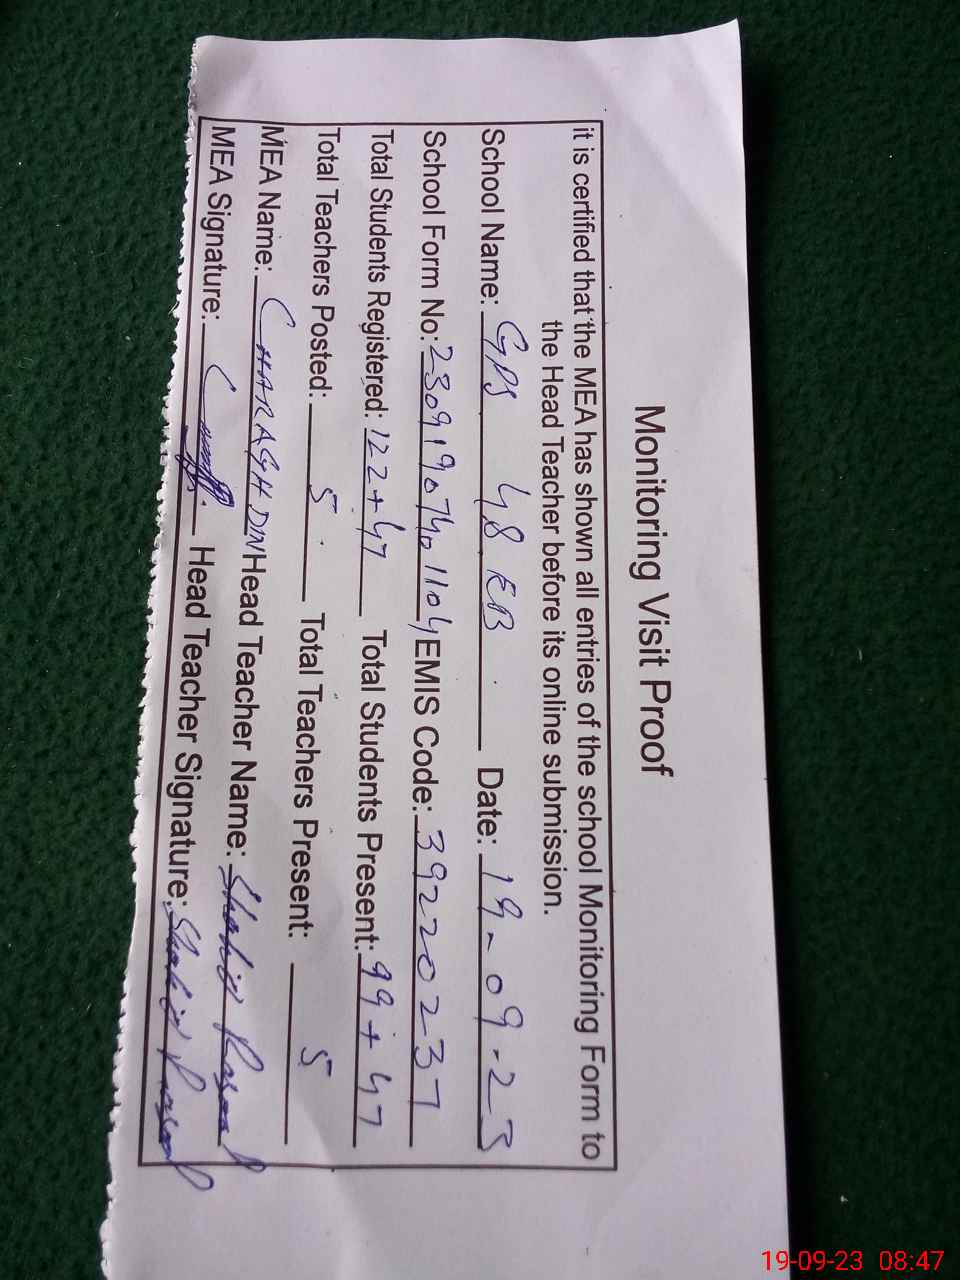 Monitoring Visit Proof
it is certified that the MEA has shown all entries of the school Monitoring Form to
the Head Teacher before its online submission.
School Name: GPS 48 RB Date: 19-09-23
School Form No: 2309190740 1104 EMIS Code: 39220237
Total Students Registered: 122+47 Total Students Present: 99+47
Total Teachers Posted: 5 Total Teachers Present: 5
MEA Name: CHARAGH DIN Head Teacher Name: Shahid Rasool
MEA Signature: Head Teacher Signature: Shahid Rasool
19-09-23 08:47